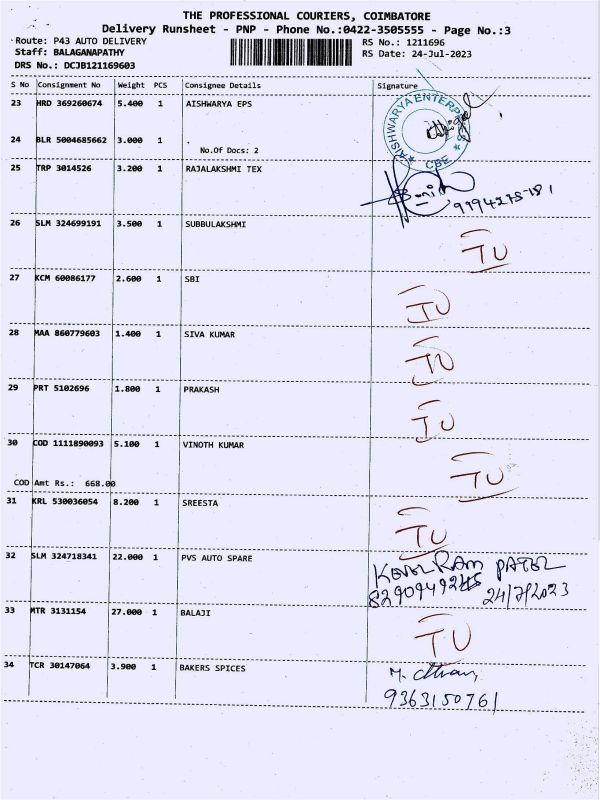 THE PROFESSIONAL COURIERS, COIMBATORE
Delivery Runsheet - PNP - Phone No.:0422-3505555 - Page No.:3
Route: P43 AUTO DELIVERY RS No.: 1211696
Staff: BALAGANAPATHY RS Date: 24-Jul-2023
DRS No.: DCJB121169603
S No Consignment No Weight PCS Consignee Details Signature
23 HRD 369260674 5.400 1 AISHWARYA EPS
AISHWARYA ENTERPRISES CBE
24 BLR 5004685662 3.000 1 .
No.Of Docs: 2
25 TRP 3014526 3.200 1 RAJALAKSHMI TEX
26 SLM 324699191 3.500 1 SUBBULAKSHMI
TU
27 KCM 60086177 2.600 1 SBI
TU
28 MAA 860779603 1.400 1 SIVA KUMAR
TU
29 PRT 5102696 1.800 1 PRAKASH
TU
30 COD 1111890093 5.100 1 VINOTH KUMAR
TU
COD Amt Rs.: 668.00
31 KRL 530036054 8.200 1 SREESTA
TU
32 SLM 324718341 22.000 1 PVS AUTO SPARE
RAM PATEL
24/7/2023
33 MTR 3131154 27.000 1 BALAJI
TU
34 TCR 30147064 3.900 1 BAKERS SPICES
9363150761